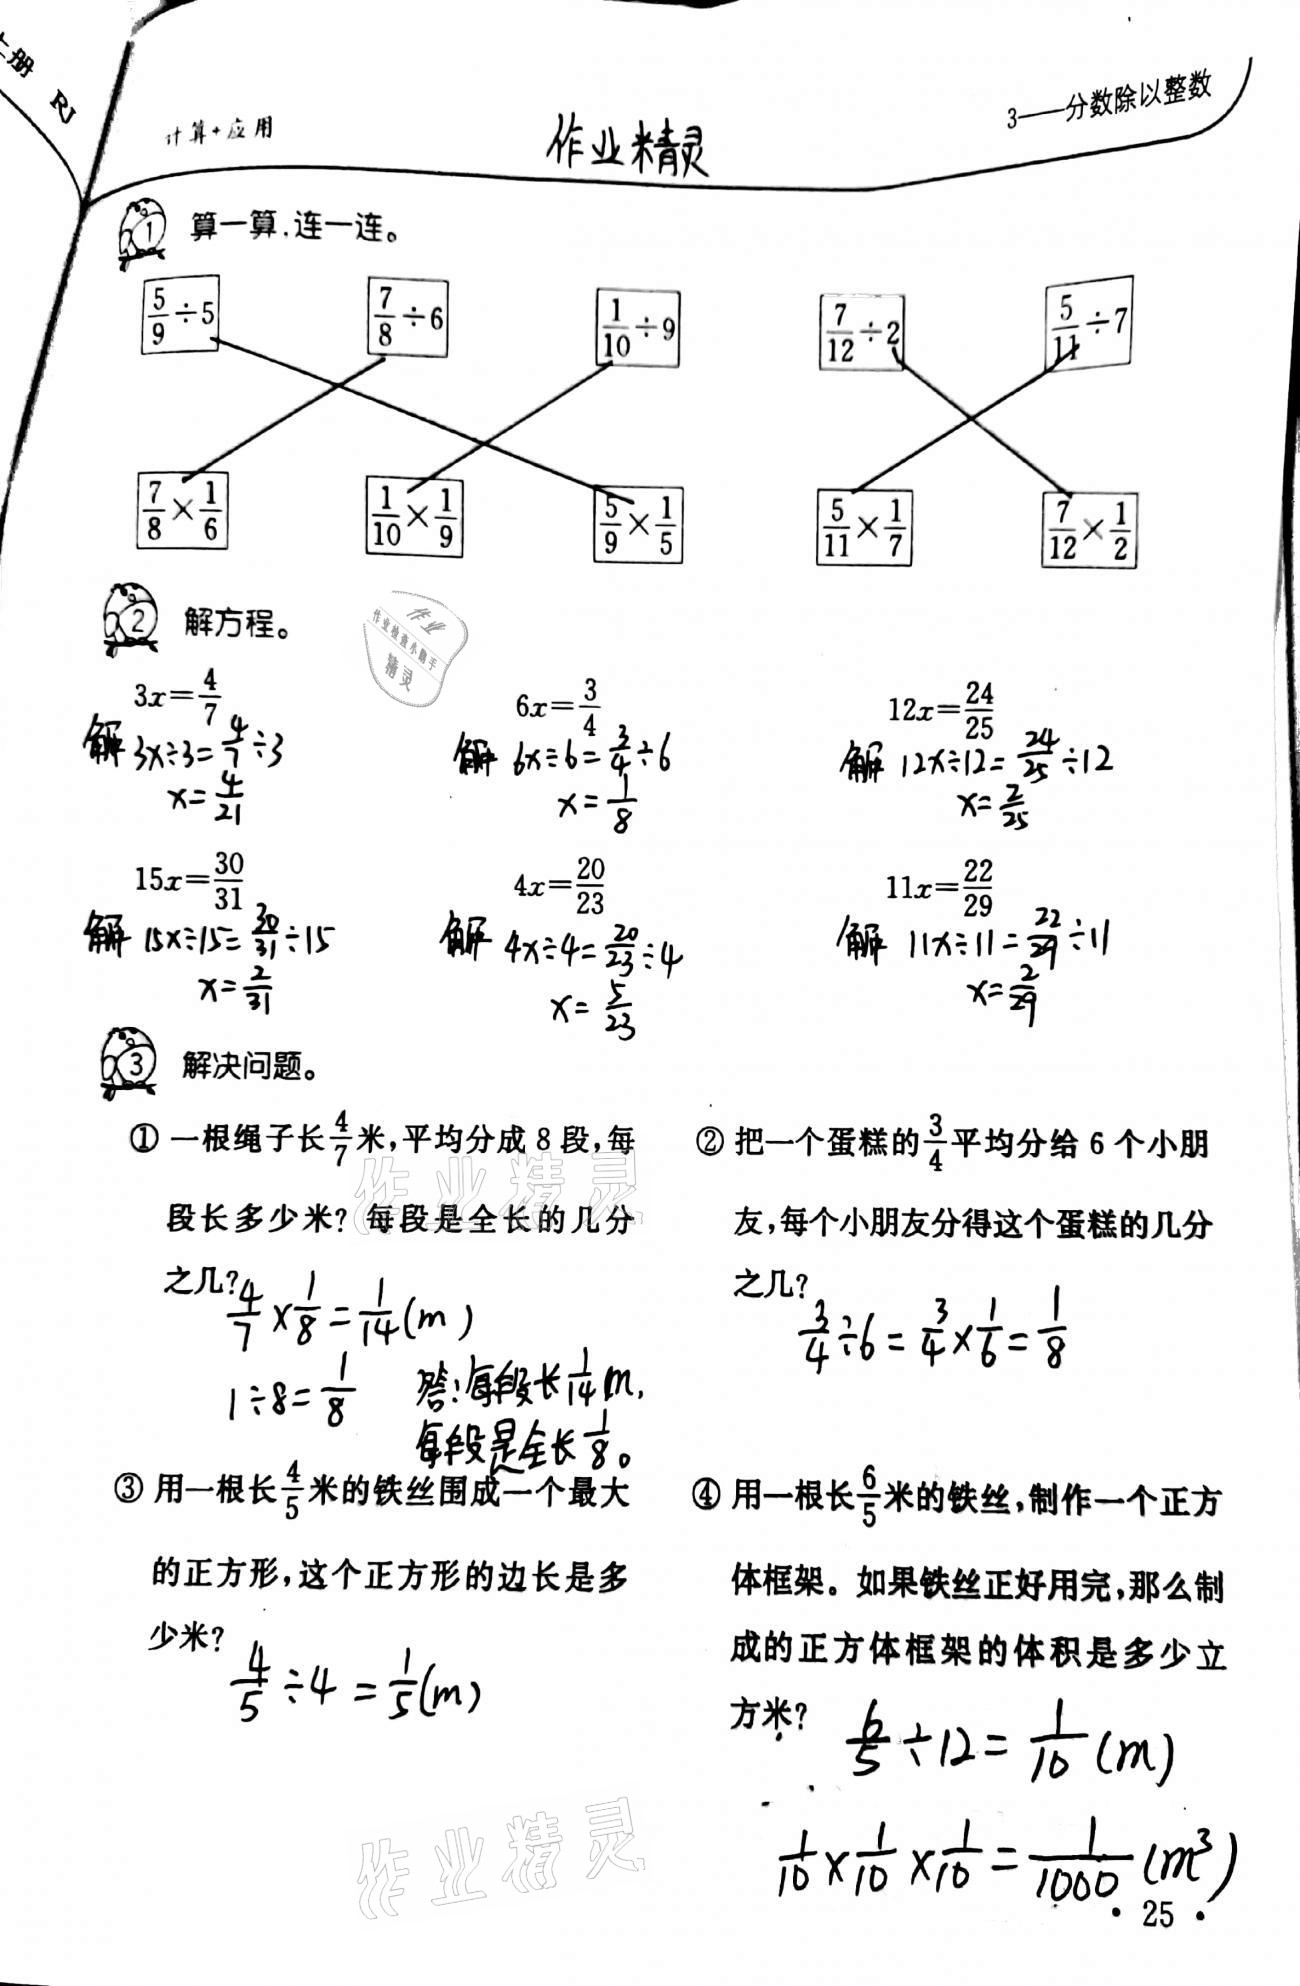 上册 RJ
计算+应用
作业精灵
3——分数除以整数
1 算一算,连一连。
5/9÷5 7/8÷6 1/10÷9 7/12÷2 5/11÷7
7/8×1/6 1/10×1/9 5/9×1/5 5/11×1/7 7/12×1/2
2 解方程。
作业
作业检查小助手
精灵
3x=4/7 6x=3/4 12x=24/25
解 3x÷3=4/7÷3 解 6x÷6=3/4÷6 解 12x÷12=24/25÷12
x=4/21 x=1/8 x=2/25
15x=30/31 4x=20/23 11x=22/29
解 15x÷15=30/31÷15 解 4x÷4=20/23÷4 解 11x÷11=22/29÷11
x=2/31 x=5/23 x=2/29
3 解决问题。
① 一根绳子长4/7米,平均分成8段,每
段长多少米?每段是全长的几分
之几?
4/7×1/8=1/14(m)
1÷8=1/8
答:每段长1/14m,
每段是全长1/8。
② 把一个蛋糕的3/4平均分给6个小朋
友,每个小朋友分得这个蛋糕的几分
之几?
3/4÷6=3/4×1/6=1/8
③ 用一根长4/5米的铁丝围成一个最大
的正方形,这个正方形的边长是多
少米?
4/5÷4=1/5(m)
④ 用一根长6/5米的铁丝,制作一个正方
体框架。如果铁丝正好用完,那么制
成的正方体框架的体积是多少立
方米?
6/5÷12=1/10(m)
1/10×1/10×1/10=1/1000(m³)
作业精灵
作业精灵
·25·